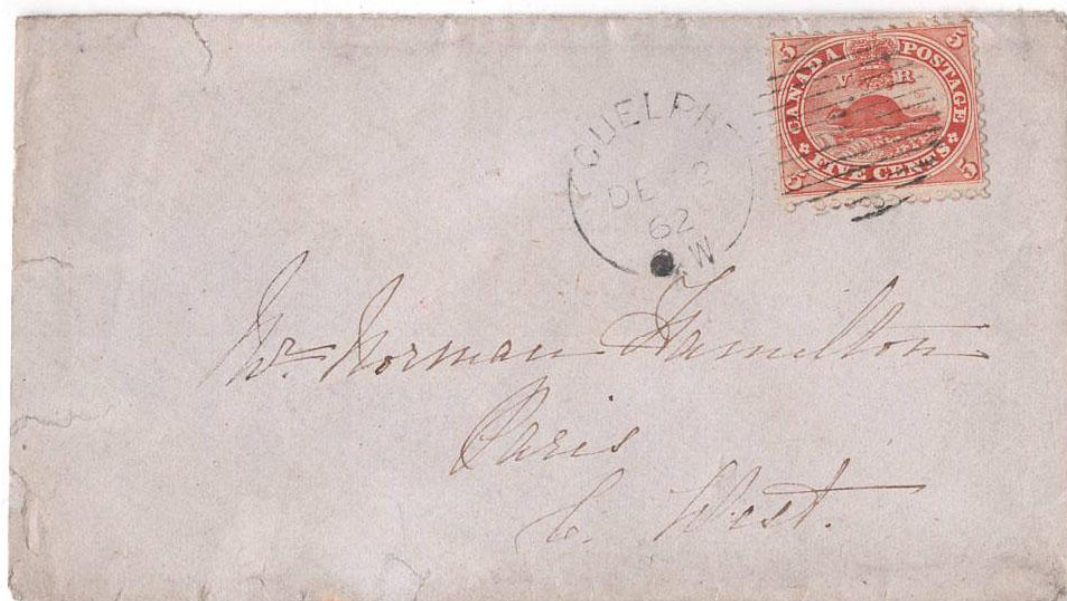 5 CANADA POSTAGE 5
V R
5 FIVE CENTS 5
GUELPH
DE
62
W
Mr. Norman Hamilton
Paris
C. West.